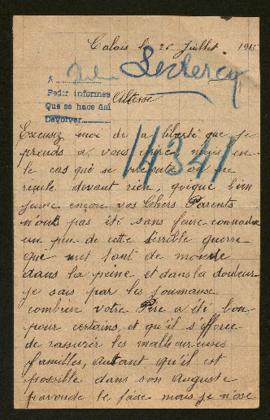 Calais le 20 Juillet 191
A Julia Leclercq
Pedir informes
Que se hace aní
Devolver
Altesse
14341
Excusez moi de la liberté que je
prends à vous mais en
le cas qui se
recule devant rien, quique bien
jeune encore vos Chers Parents
n'ont pas été sans faire connaître
un peu de cette terrible guerre
que met tant de monde
dans la peine et dans la douleur
je sais par les journaux
combien votre Père a été bon
pour certains, et qu'il s'efforce
de rassurer les malheureuses
familles, autant qu'il est
possible dans son Auguste
personne de le faire mais je n'ose